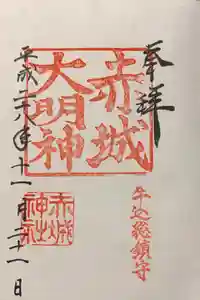 奉拝
赤城
大明神
牛込総鎮守
赤城
神社
平成二八年十一月二十一日